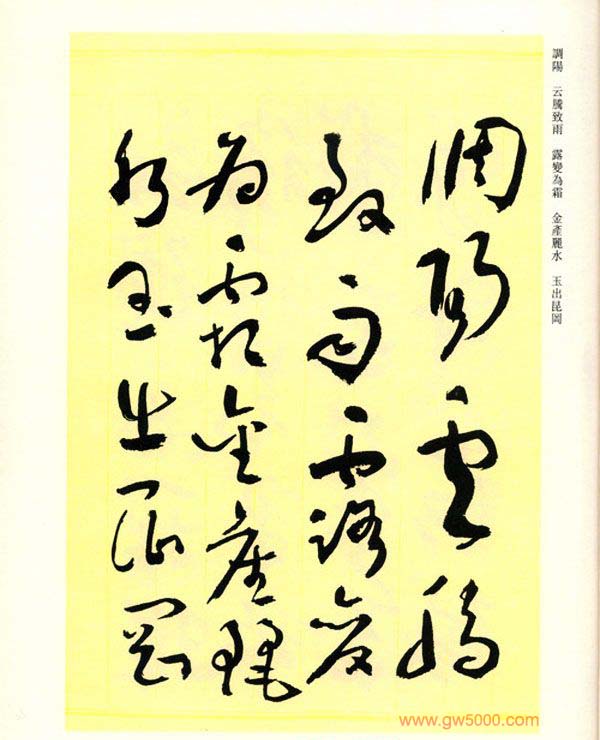 調陽 云騰致雨 露變為霜 金產麗水 玉出昆岡
調陽雲騰
致雨露變
為霜金產麗
水玉出崑岡
www.gw5000.com